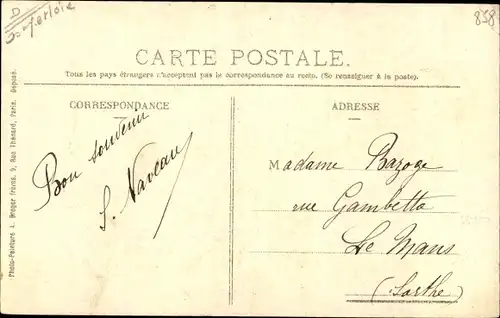 D
858
CARTE POSTALE.
Tous les pays étrangers n'acceptent pas la correspondance au recto. (Se renseigner à la poste).
CORRESPONDANCE
ADRESSE
Bon souvenir
S. Naveau
Madame Bazoge
rue Gambetta
Le Mans
(Sarthe)
Photo-Peinture A. Breger frères, 9, Rue Thénard, Paris. Déposé.